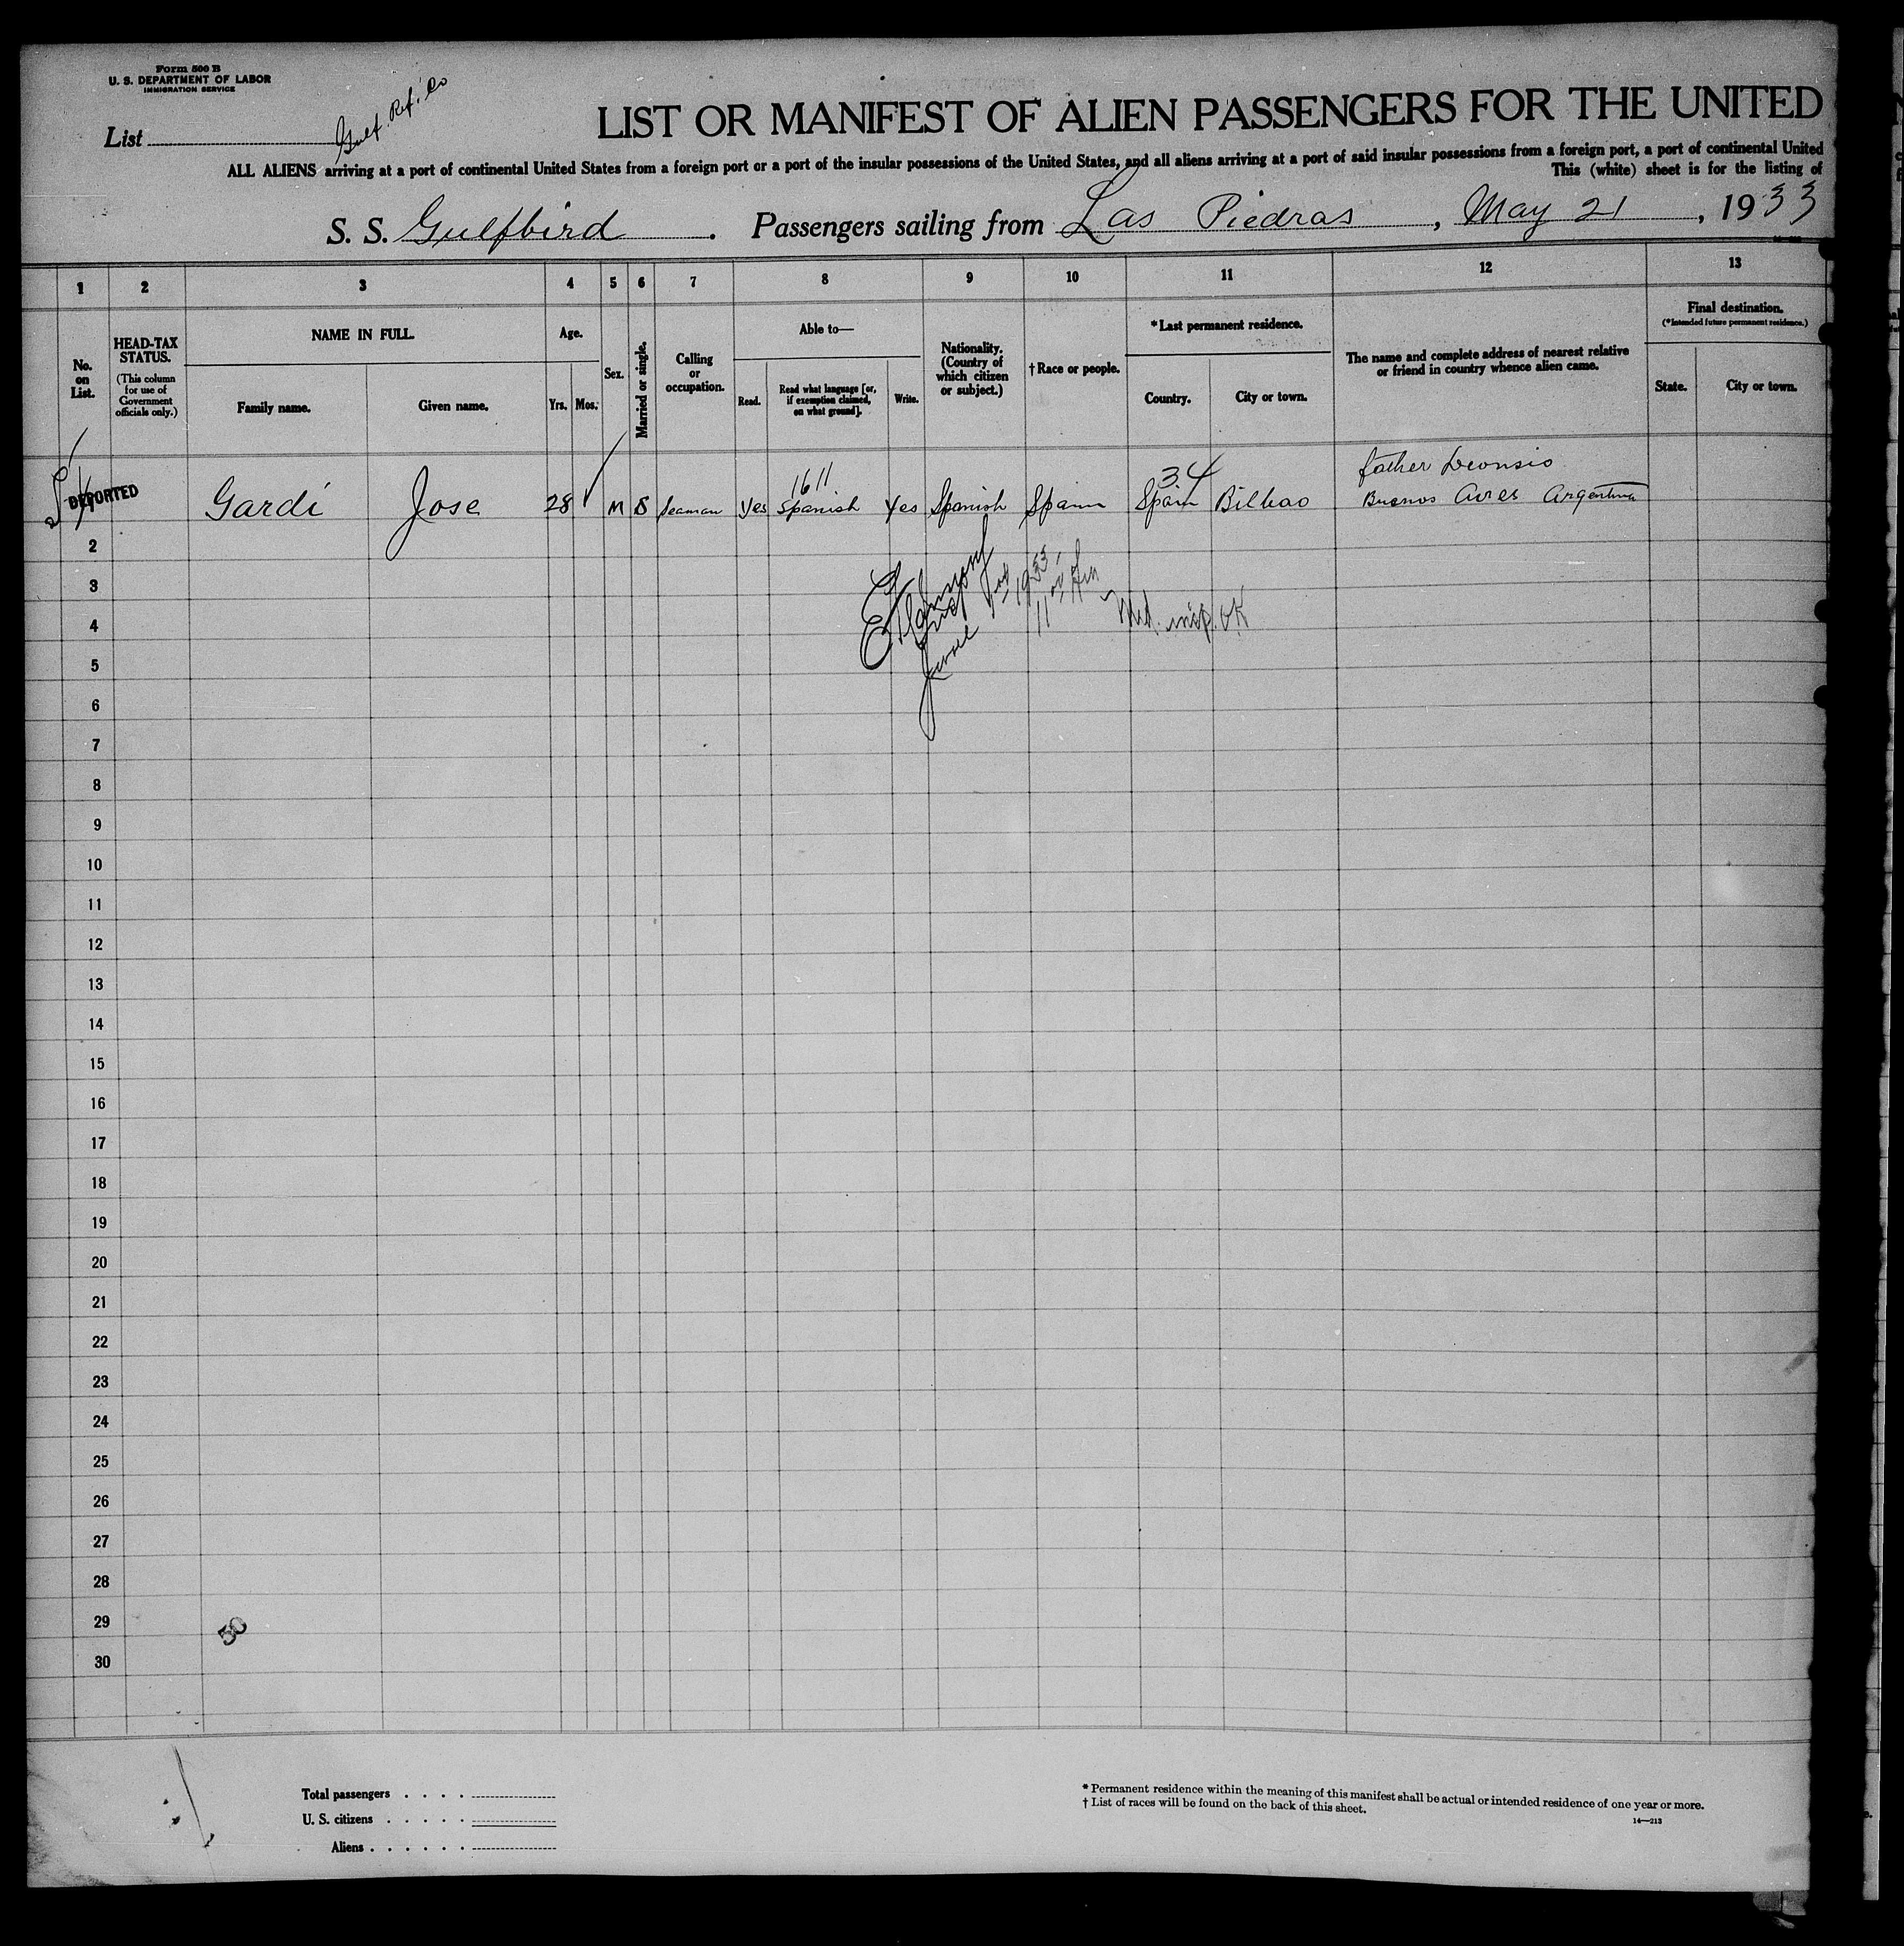 Form 500 B
U. S. DEPARTMENT OF LABOR
IMMIGRATION SERVICE
List
Gulf. Ref. Co
LIST OR MANIFEST OF ALIEN PASSENGERS FOR THE UNITED
ALL ALIENS arriving at a port of continental United States from a foreign port or a port of the insular possessions of the United States, and all aliens arriving at a port of said insular possessions from a foreign port, a port of continental United
This (white) sheet is for the listing of
S. S. Gulfbird . Passengers sailing from Las Piedras , May 21 , 1933
1 2 3 4 5 6 7 8 9 10 11 12 13
No. on List.
HEAD-TAX STATUS.
(This column for use of Government officials only.)
NAME IN FULL.
Family name. Given name.
Age.
Yrs. Mos.
Sex.
Married or single.
Calling or occupation.
Able to—
Read. Read what language [or, if exemption claimed, on what ground]. Write.
Nationality. (Country of which citizen or subject.)
† Race or people.
* Last permanent residence.
Country. City or town.
The name and complete address of nearest relative or friend in country whence alien came.
Final destination.
(* Intended future permanent residence.)
State. City or town.
1611 34 father
DEPORTED Gardi Jose 28 M S Seaman Yes Spanish Yes Spanish Spain Spain Bilbao Buenos Aires Argentina
2
3
June 1933
4
Med. insp. OK
5
6
7
8
9
10
11
12
13
14
15
16
17
18
19
20
21
22
23
24
25
26
27
28
29
30
Total passengers . . . .
U. S. citizens . . . . .
Aliens . . . . . .
* Permanent residence within the meaning of this manifest shall be actual or intended residence of one year or more.
† List of races will be found on the back of this sheet.
14—213